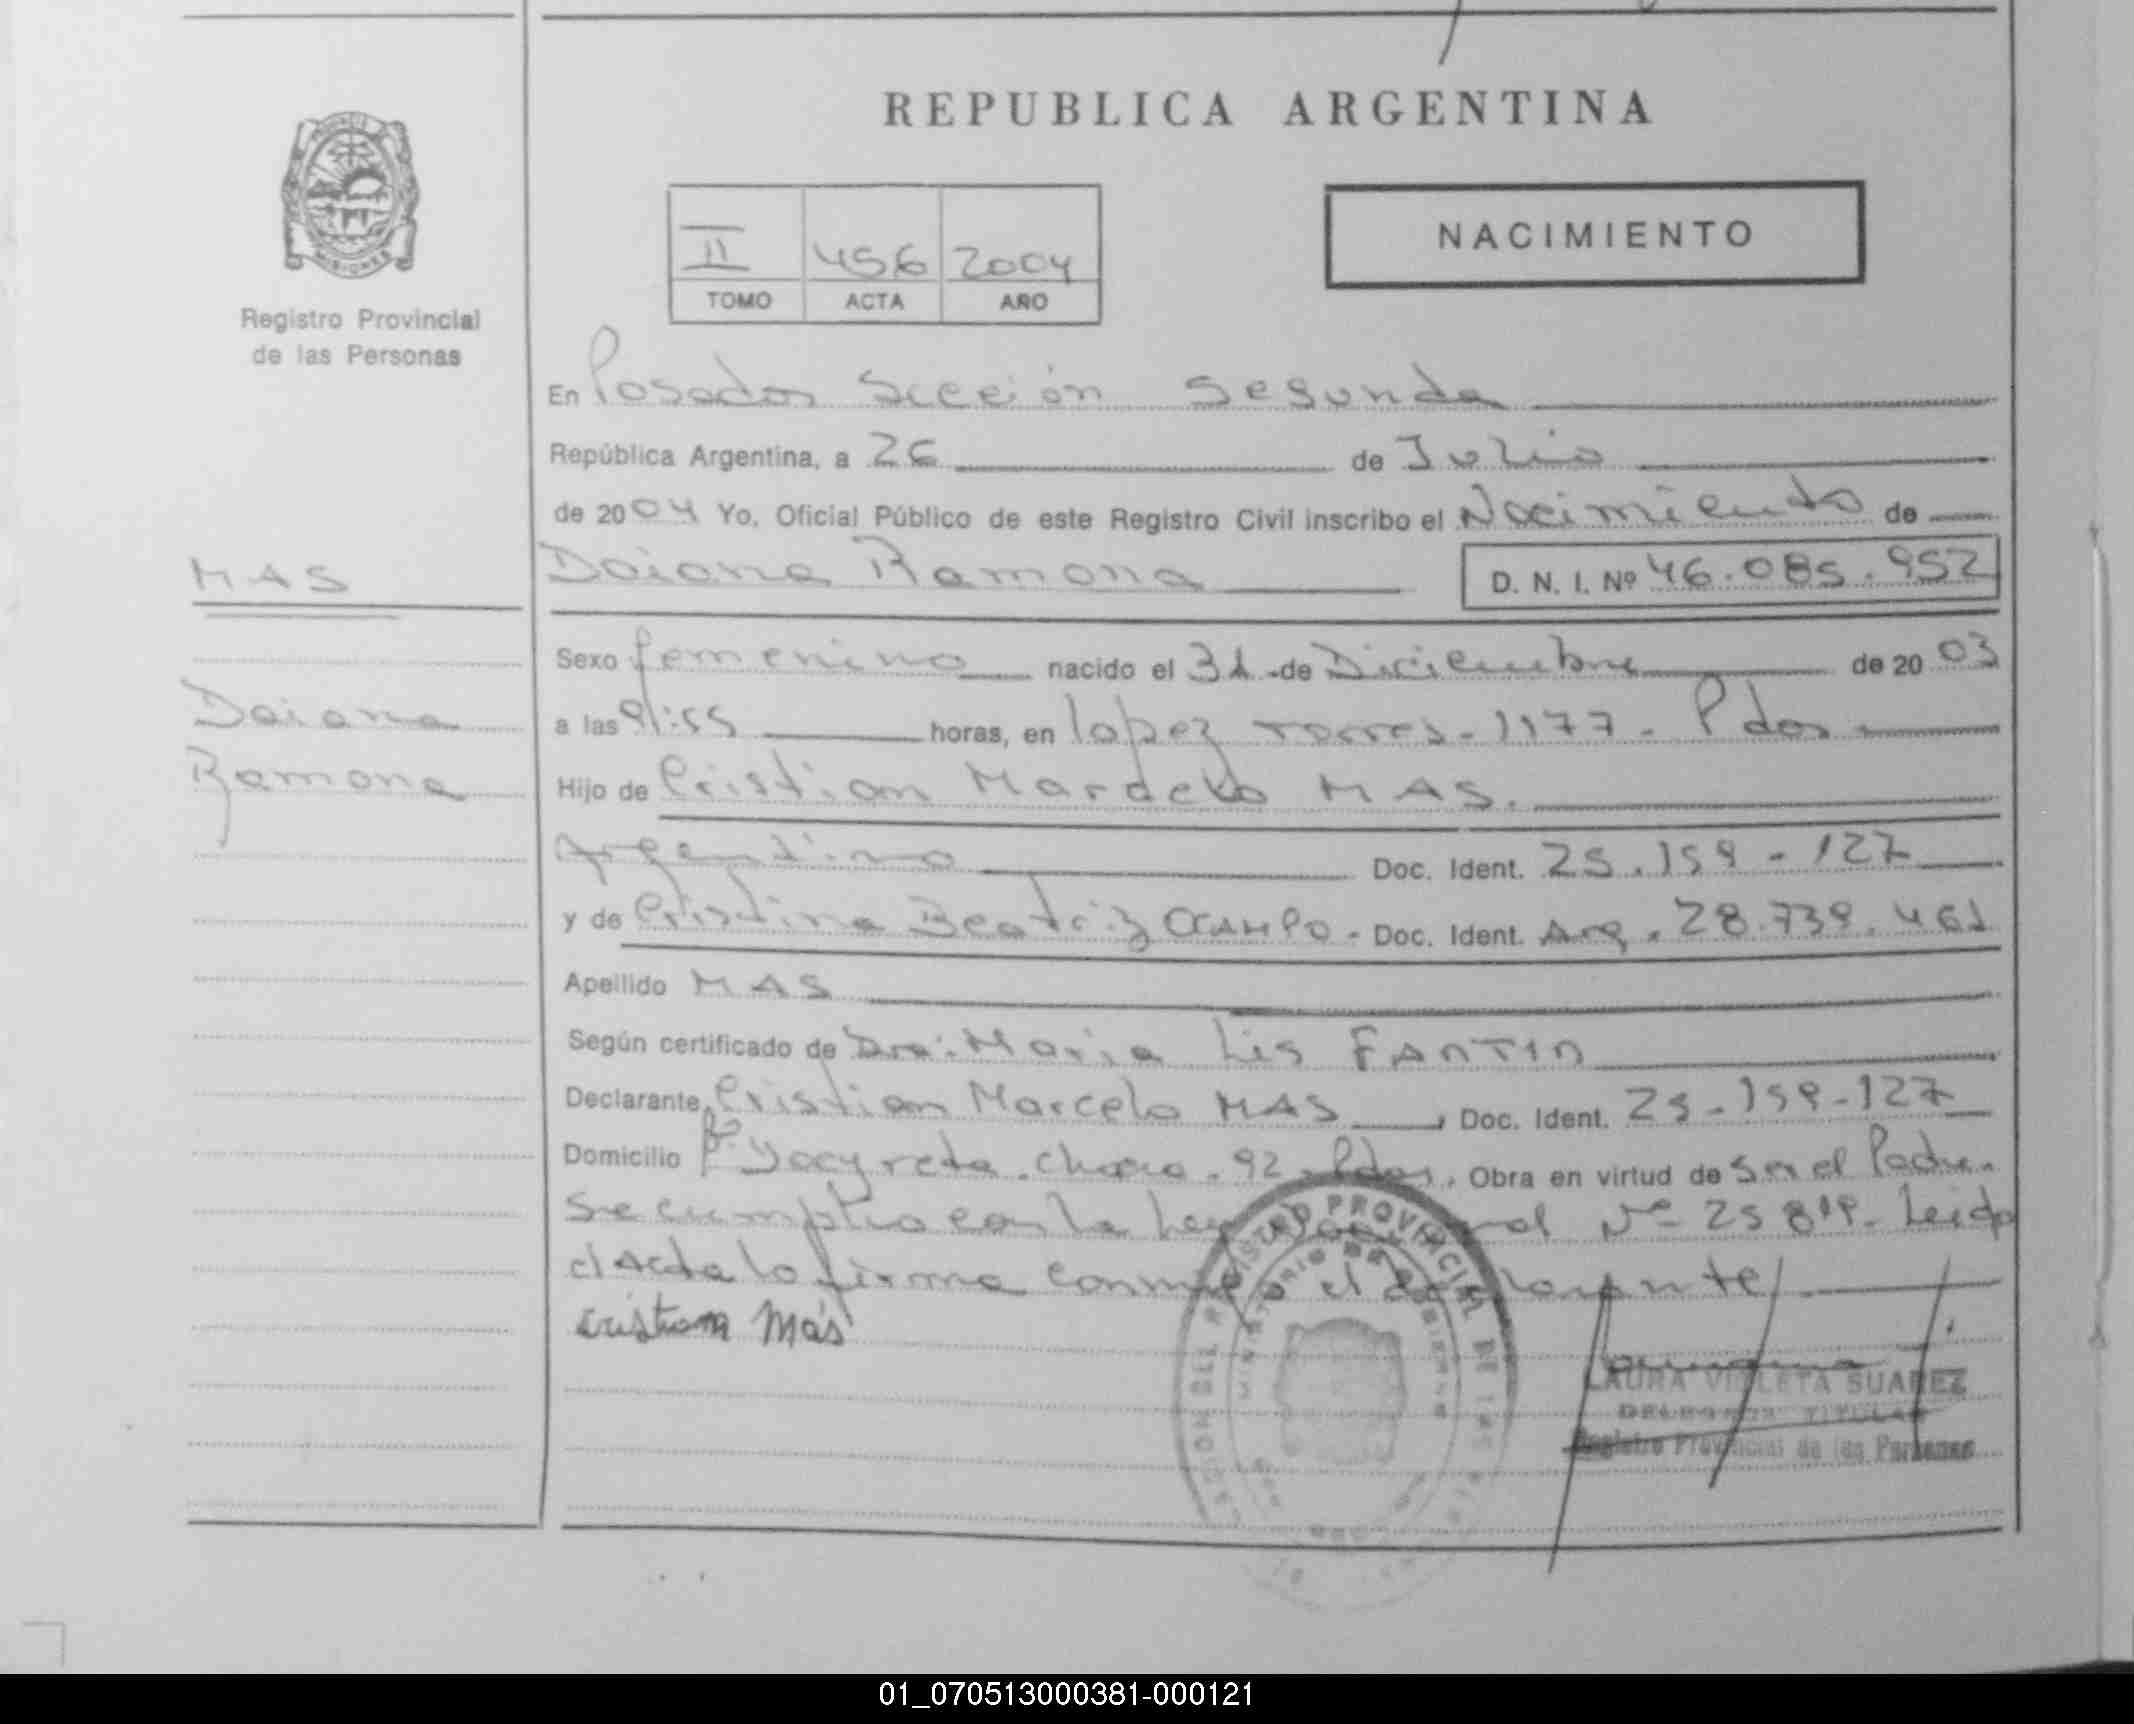 REPUBLICA ARGENTINA
MISIONES
Registro Provincial
de las Personas
II 456 2004
TOMO ACTA AÑO
NACIMIENTO
En Posadas Sección Segunda
República Argentina, a 26 de Julio
de 2004 Yo, Oficial Público de este Registro Civil inscribo el Nacimiento de
MAS
Daiana Ramona D. N. I. Nº 46.085.952
Sexo femenino nacido el 31 de Diciembre de 2003
Daiana
Ramona
a las 21:55 horas, en lopez torres - 1177 - Pdas
Hijo de Cristian Marcelo MAS.
Argentino Doc. Ident. 25.159-127
y de Cristina Beatriz OCAMPO - Doc. Ident. Arg. 28.739.461
Apellido MAS
Según certificado de Dra: Maria Lis FANTIN
Declarante, Cristian Marcelo MAS, Doc. Ident. 25-159-127
Domicilio Bº Yacyreta. Chacra. 92 - Pdas, Obra en virtud de ser el Padre.
Se cumplio con la Ley Nº 25819. Leida
el Acta lo firma conmigo el declarante
cristian Más
REGISTRO PROVINCIAL DE LAS
MINISTERIO DE GOBIERNO
LAURA VIOLETA SUAREZ
DELEGADA TITULAR
Registro Provincial de las Personas
01_070513000381-000121